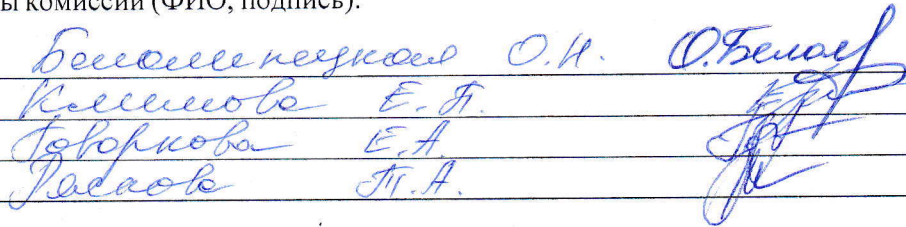 ы комиссии (ФИО, подпись):
Белолипецкая О.Н. О.Белол
Климова Е.П.
Говоркова Е.А.
Т.А.